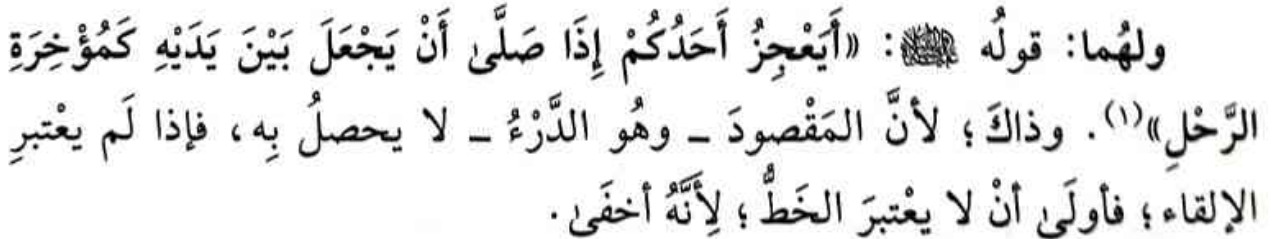 ولهُما: قولُه ﷺ: «أَيَعْجِزُ أَحَدُكُمْ إِذَا صَلَّىٰ أَنْ يَجْعَلَ بَيْنَ يَدَيْهِ كَمُؤْخِرَةِ
الرَّحْلِ»(١). وذاكَ؛ لأنَّ المَقْصودَ ـ وهُو الدَّرْءُ ـ لا يحصلُ بِه، فإذا لَم يعْتبرِ
الإلقاء؛ فأولَىٰ أنْ لا يعْتبرَ الخَطُّ؛ لِأَنَّهُ أخفَىٰ.